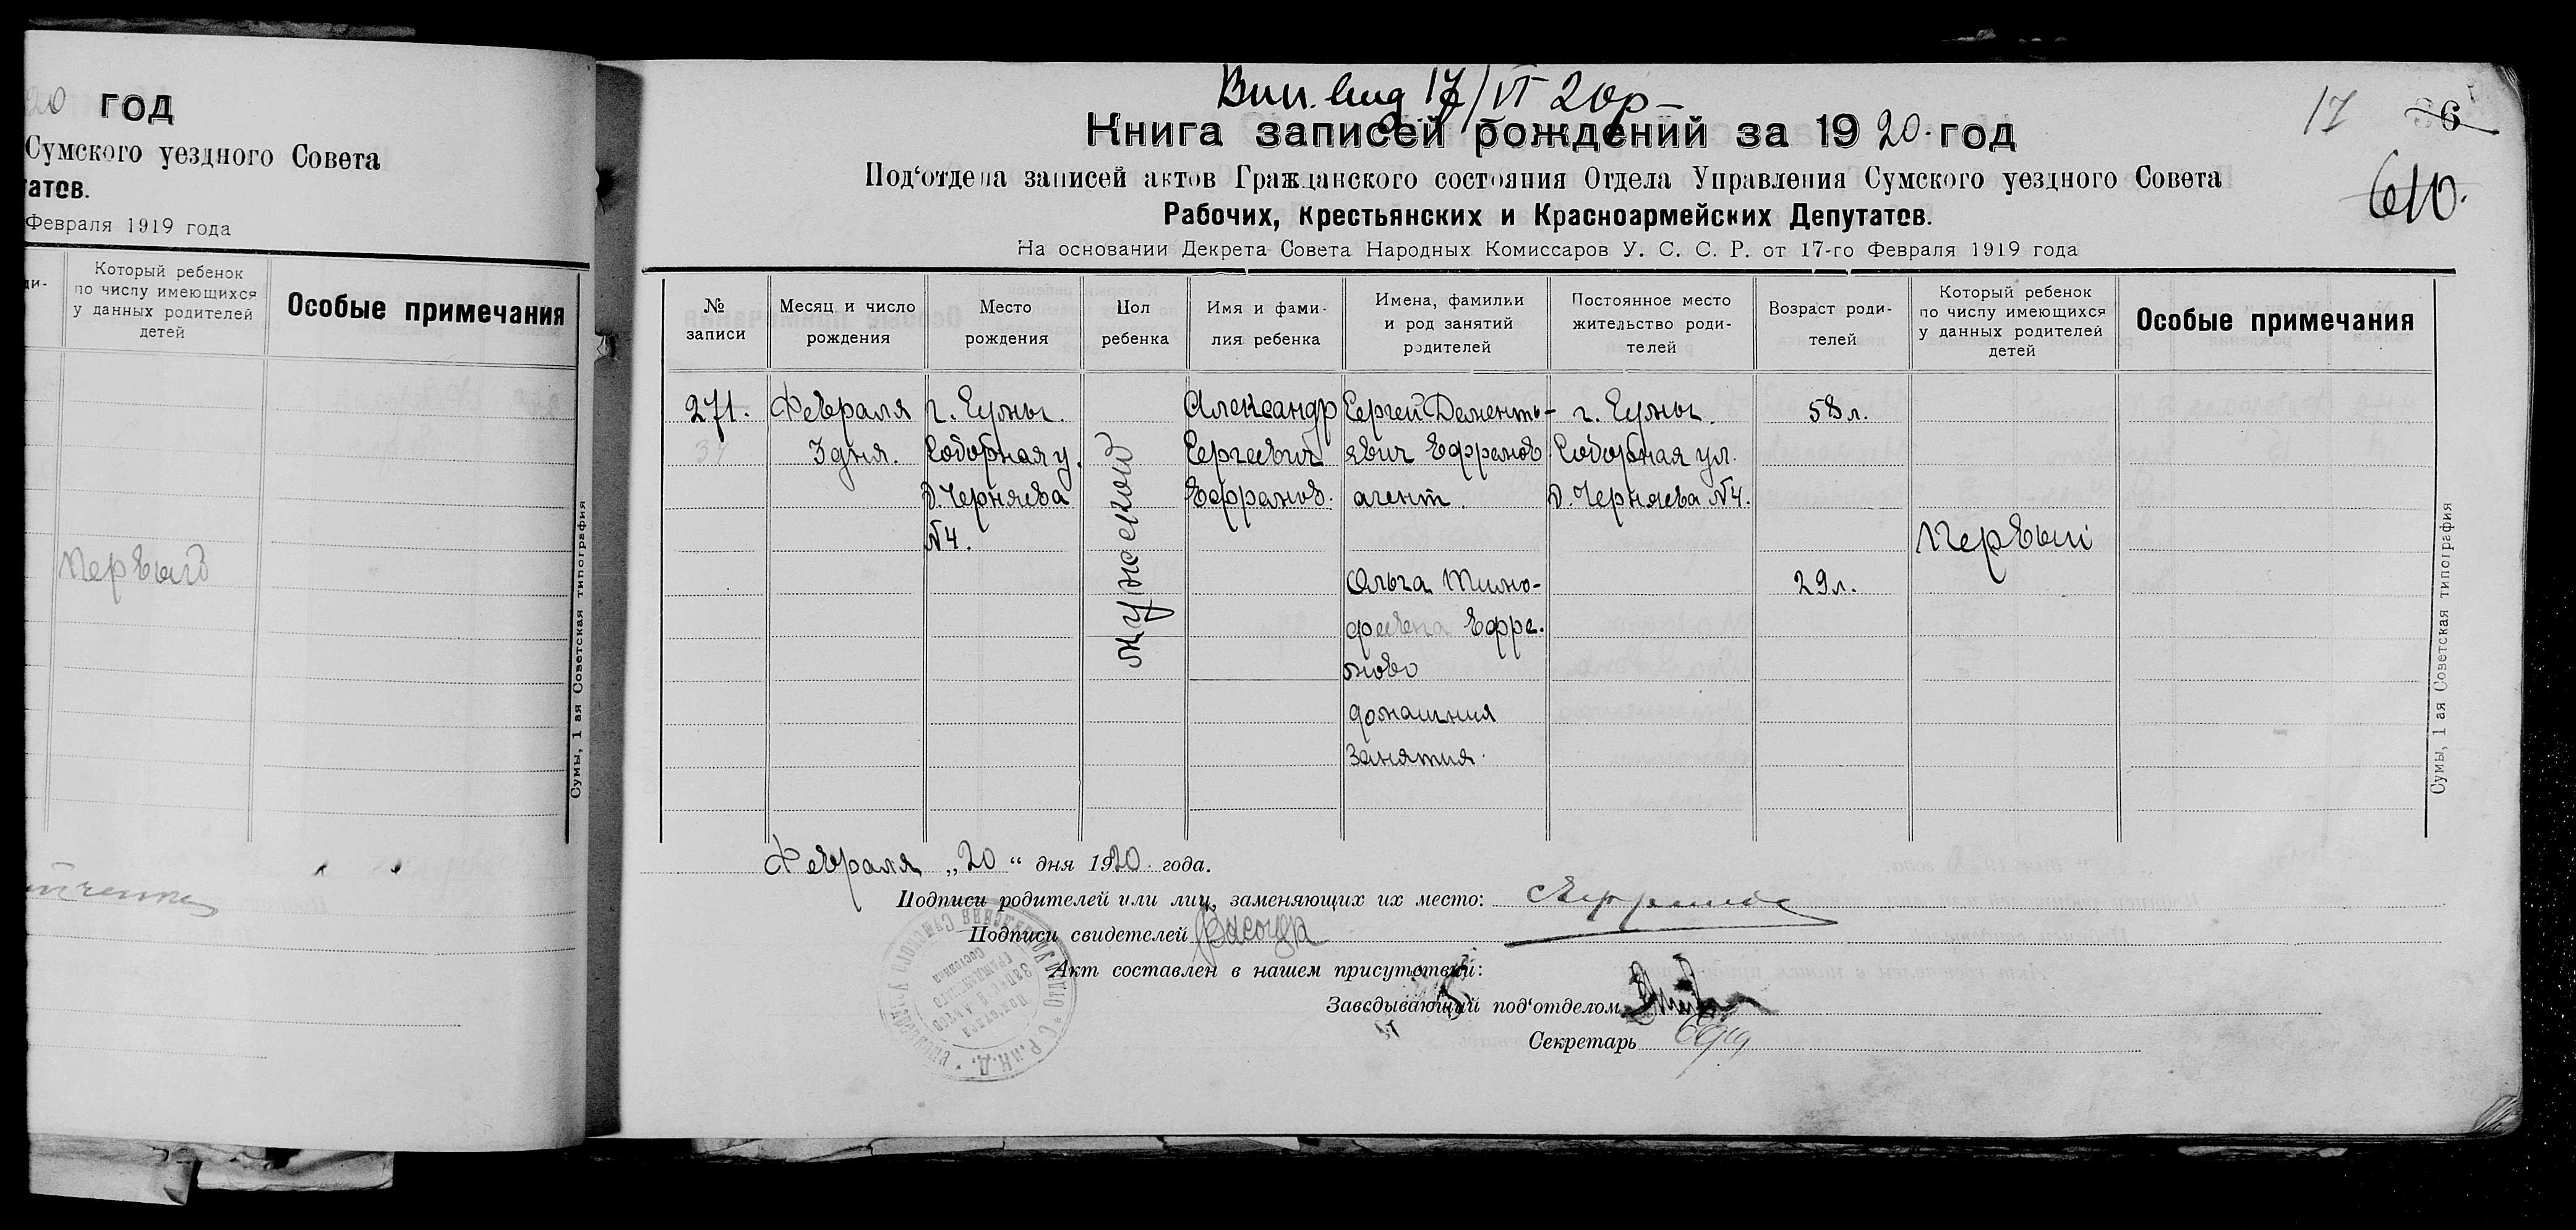 20 год
Сумского уездного Совета
атов.
Февраля 1919 года
ди-
Который ребенок
по числу имеющихся
у данных родителей
детей
Особые примечания
Первый
Сумы, 1 ая Советская типография
Вып. 17/VI 20р
17 6
610.
Книга записей рождений за 1920. год
Под‘отдела записей актов Гражданского состояния Отдела Управления Сумского уездного Совета
Рабочих, Крестьянских и Красноармейских Депутатов.
На основании Декрета Совета Народных Комиссаров У. С. С. Р. от 17-го Февраля 1919 года
№
записи
Месяц и число
рождения
Место
рождения
Пол
ребенка
Имя и фами-
лия ребенка
Имена, фамилии
и род занятий
родителей
Постоянное место
жительство роди-
телей
Возраст роди-
телей
Который ребенок
по числу имеющихся
у данных родителей
детей
Особые примечания
271.
Февраля
3 дня.
г. Сумы.
Соборная у.
д. Черняева
№4.
мужской
Александр
Сергеевич
Ефремов.
Сергей Дементь-
евич Ефремов
агент.
Ольга Тимо-
феевна Ефре-
мово
домашния
занятия.
г. Сумы.
Соборная ул.
д. Черняева №4.
58 л.
29 л.
Первый
Сумы, 1 ая Советская типография
Февраля „20“ дня 1920 года.
Подписи родителей или лиц, заменяющих их место: Ефремов
Подписи свидетелей
Акт составлен в нашем присутствии:
Заведывающий под‘отделом
Секретарь